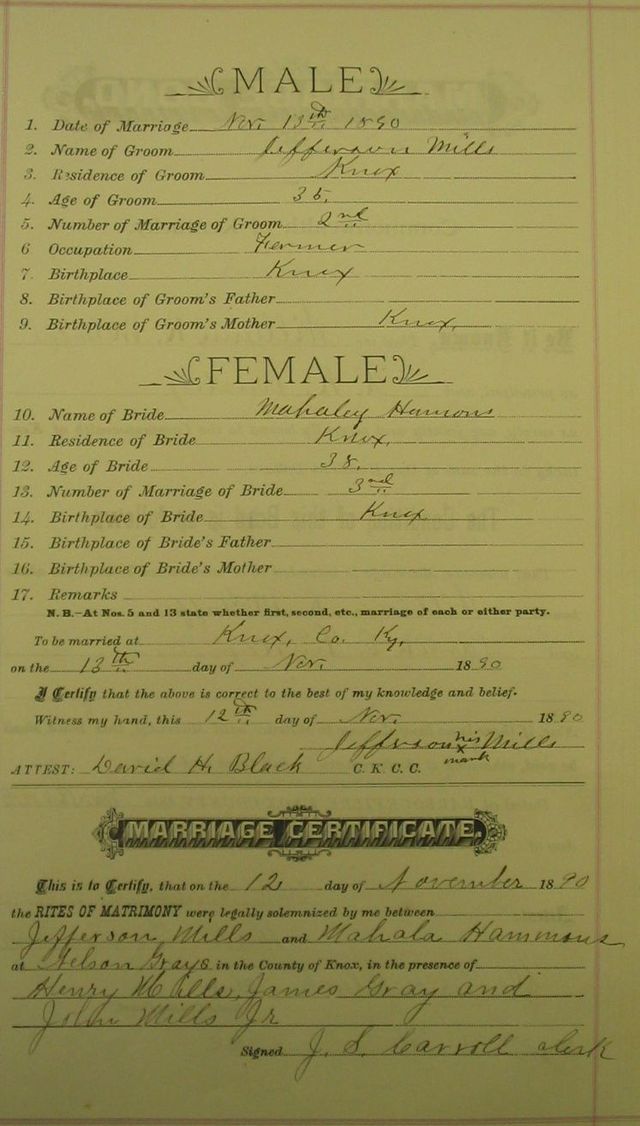 MALE
1. Date of Marriage Nov. 13th 1890
2. Name of Groom Jefferson Mills
3. Residence of Groom Knox
4. Age of Groom 35.
5. Number of Marriage of Groom 2nd
6 Occupation Farmer
7. Birthplace Knox
8. Birthplace of Groom's Father
9. Birthplace of Groom's Mother Knox.
FEMALE
10. Name of Bride Mahaley Hamons
11. Residence of Bride Knox.
12. Age of Bride 38.
13. Number of Marriage of Bride 3nd
14. Birthplace of Bride Knox
15. Birthplace of Bride's Father
16. Birthplace of Bride's Mother
17. Remarks
N. B.—At Nos. 5 and 13 state whether first, second, etc., marriage of each or either party.
To be married at Knox, Co. Ky.
on the 13th day of Nov. 1890
I Certify that the above is correct to the best of my knowledge and belief.
Witness my hand, this 12th day of Nov. 1890
Jefferson his x mark Mills
ATTEST: David H. Black C. K. C. C.
MARRIAGE CERTIFICATE.
This is to Certify, that on the 12 day of November 1890
the RITES OF MATRIMONY were legally solemnized by me between
Jefferson Mills and Mahala Hammons
at Nelson Grays in the County of Knox, in the presence of
Henry Mills, James Gray and
John Mills Jr
Signed J. S. Carroll clerk